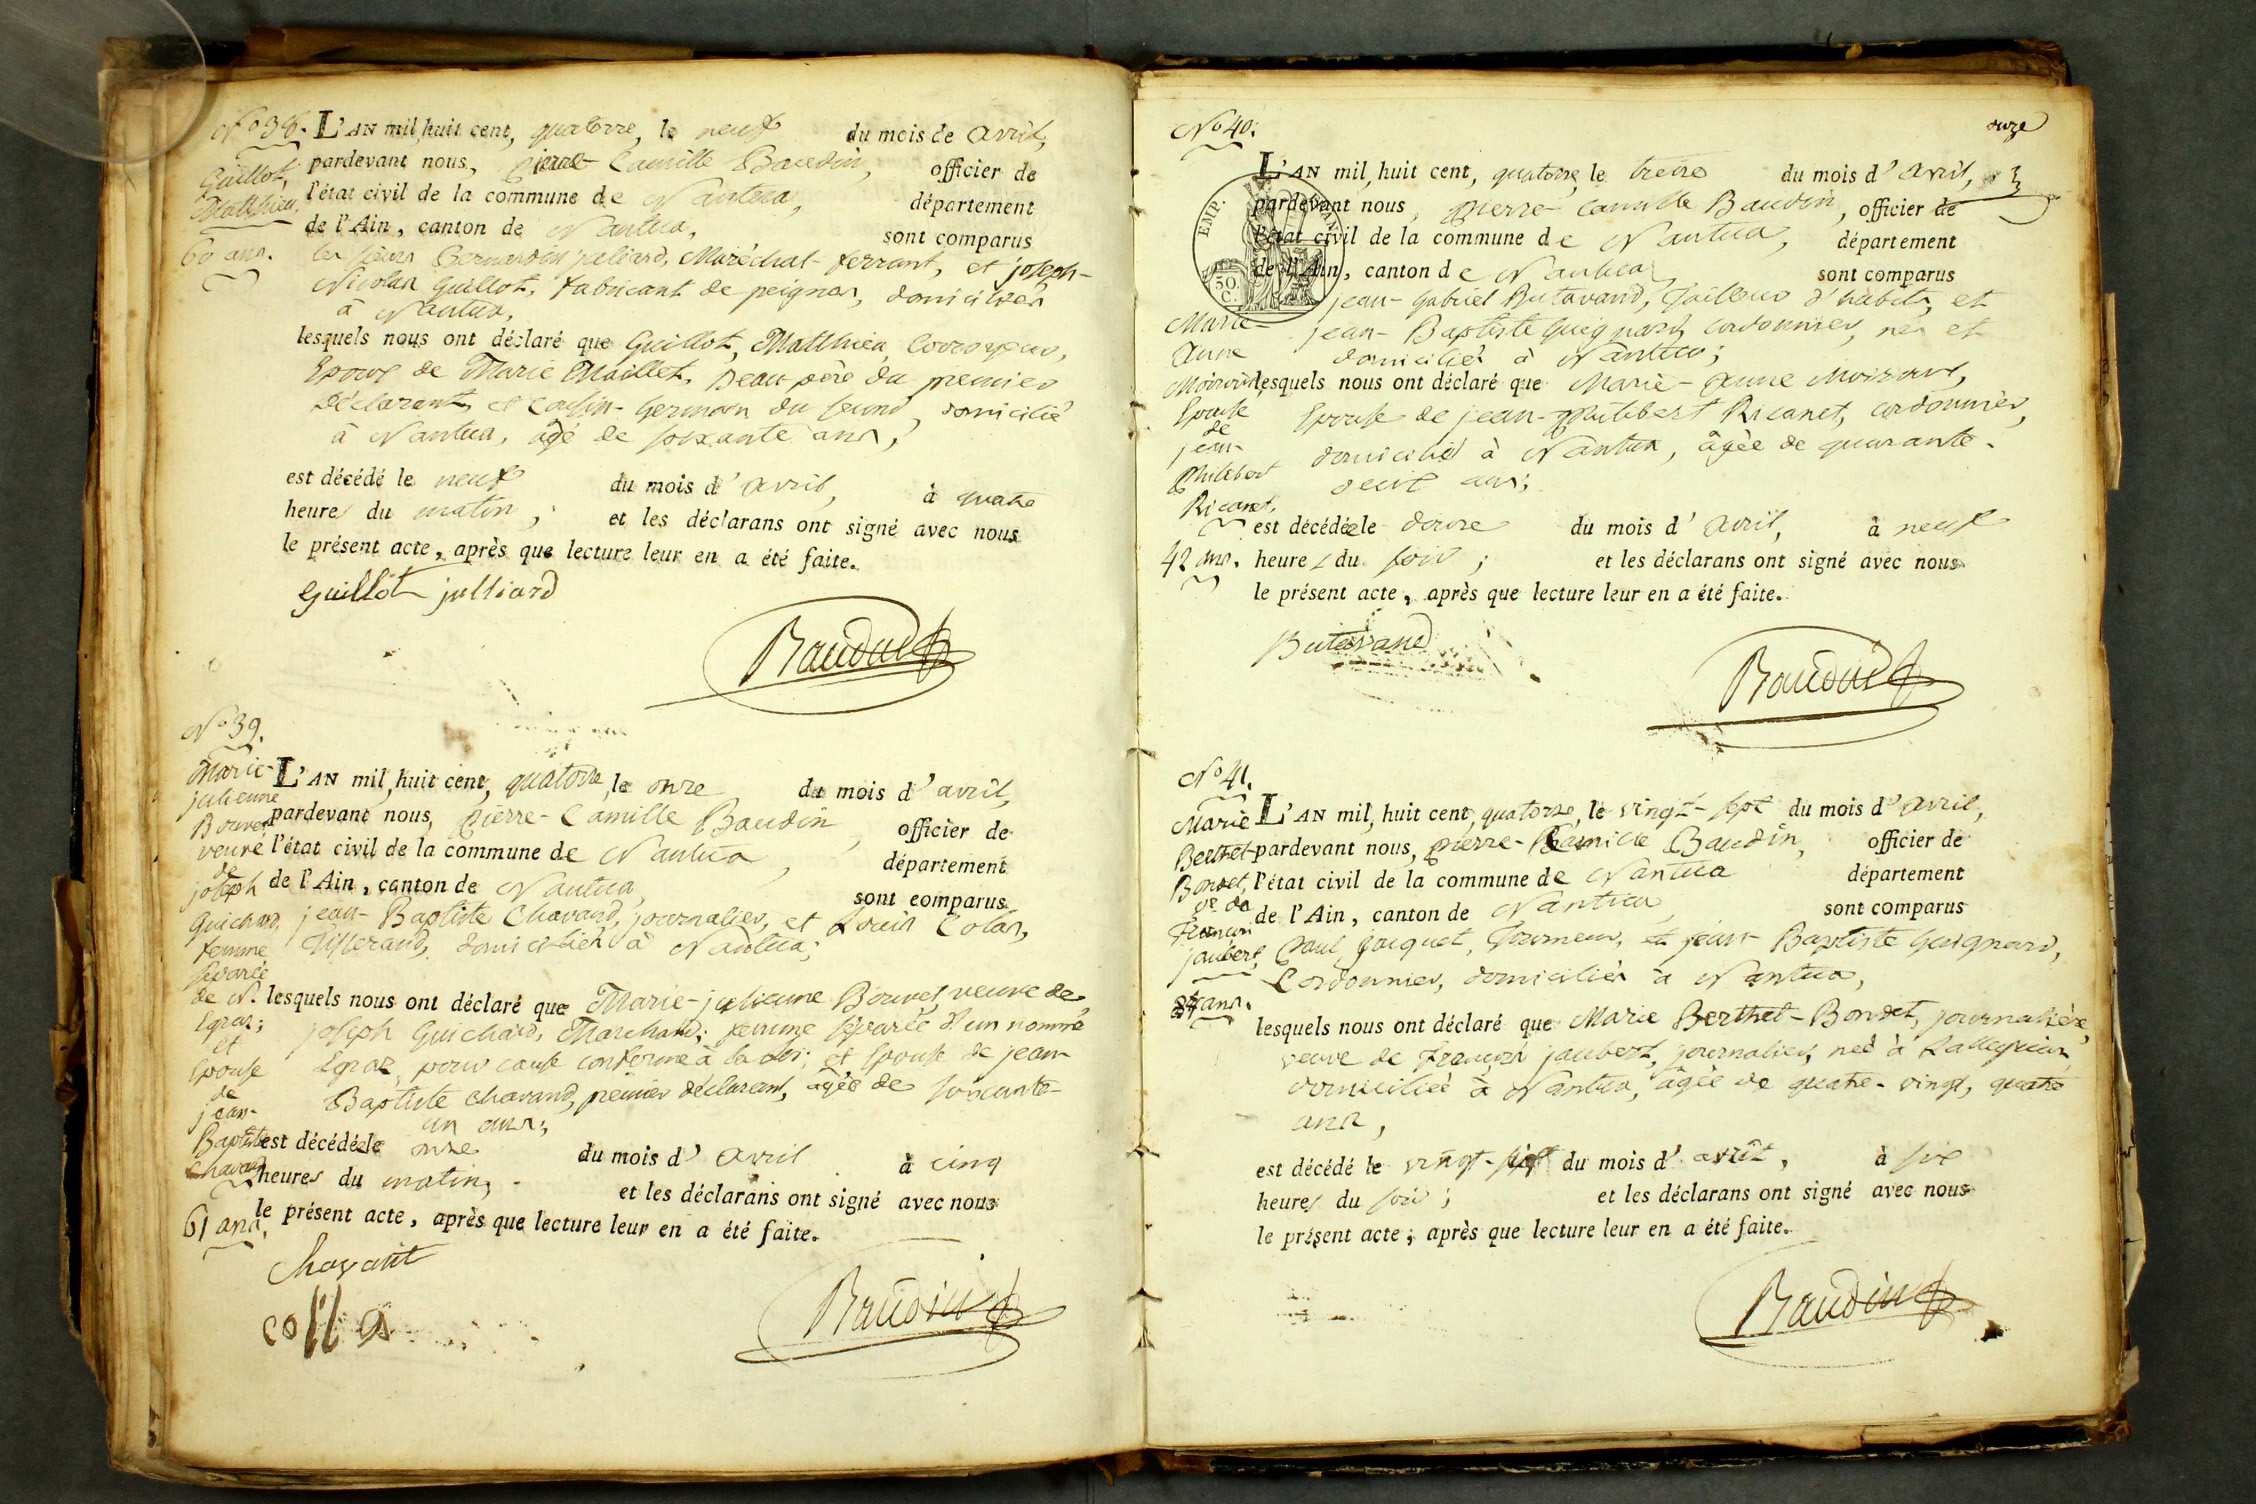 N° 38.
Guillot,
Matthieu,
60 ans.
L'AN mil, huit cent, quatorze, le neuf du mois de avril,
pardevant nous, pierre-Camille Baudin, officier de
l'état civil de la commune de Nantua, département
de l'Ain, canton de Nantua, sont comparus
les sieurs Bernardin julliard, Maréchal-ferrant, et joseph-
Nicolas Guillot, fabricant de peignes, domiciliés
à Nantua,
lesquels nous ont déclaré que Guillot, Matthieu, Corroyeur,
Epoux de Marie Maillet, Beau père du premier
déclarant, et cousin-germain du second, domicilié
à Nantua, âgé de soixante ans,
est décédé le neuf du mois d' avril, à quatre
heures du matin, et les déclarans ont signé avec nous
le présent acte, après que lecture leur en a été faite.
Guillot julliard
Baudin
N° 39.
Marie-
julienne
Bouvet
veuve
de
joseph
Guichard,
femme
séparée
de N.
Egraz;
et
Epouse
de
jean-
Baptiste
Chavand
61 ans.
L'AN mil, huit cent, quatorze, le onze du mois d' avril,
pardevant nous, pierre-Camille Baudin, officier de
l'état civil de la commune de Nantua, département
de l'Ain, canton de Nantua, sont comparus
jean-Baptiste Chavand, journalier, et Louis Colas,
Tisserand, domiciliés à Nantua;
lesquels nous ont déclaré que Marie-julienne Bouvet, veuve de
joseph Guichard, Marchand; femme séparée d'un nommé
Egraz, pour cause conforme à la loi; et Epouse de jean-
Baptiste Chavand, premier déclarant, âgée de soixante-
un ans;
est décédée le onze du mois d' avril à cinq
heures du matin, et les déclarans ont signé avec nous
le présent acte, après que lecture leur en a été faite.
Chavant
colla
Baudin
onze
N° 40.
EMP.
50.
C.
Marie-
Anne
Moirard
Epouse
de
jean-
Philibert
Ricanet,
42 ans.
L'AN mil, huit cent, quatorze, le treize du mois d' avril,
pardevant nous, pierre-Camille Baudin, officier de
l'état civil de la commune de Nantua, département
de l'Ain, canton de Nantua, sont comparus
jean-Gabriel Butavand, Tailleur d'habits, et
jean-Baptiste Guignard, cordonnier, nés et
domiciliés à Nantua;
lesquels nous ont déclaré que Marie-Anne Moirard,
Epouse de jean-philibert Ricanet, cordonnier,
domicilié à Nantua, âgée de quarante-
deux ans;
est décédée le douze du mois d' avril, à neuf
heures du soir; et les déclarans ont signé avec nous
le présent acte, après que lecture leur en a été faite.
Butavand
Baudin
N° 41.
Marie
Berthet-
Bondet,
ve de
François
jaubert,
84 ans.
L'AN mil, huit cent, quatorze, le vingt-sept du mois d' avril,
pardevant nous, pierre-Camille Baudin, officier de
l'état civil de la commune de Nantua département
de l'Ain, canton de Nantua sont comparus
Paul jacquet, Tourneur, et jean-Baptiste Guignard,
Cordonnier, domiciliés à Nantua,
lesquels nous ont déclaré que Marie Berthet-Bondet, journalière,
veuve de François jaubert, journalier, née à Lalleyriat,
domiciliée à Nantua, âgée de quatre-vingt, quatre
ans,
est décédé le vingt-sept du mois d' avril, à six
heures du soir; et les déclarans ont signé avec nous
le présent acte; après que lecture leur en a été faite.
Baudin